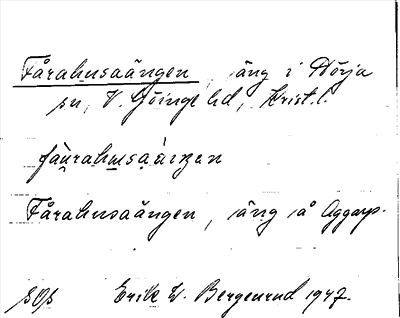 Fårahusaängen, äng i Nörja
sn, V. Göinge hd, Krist. l.
fàu̯rahu̱sa̱ä́ngen
Fårahusaängen, äng å Aggarp.
sOs Erik W. Bergenrud 1947.